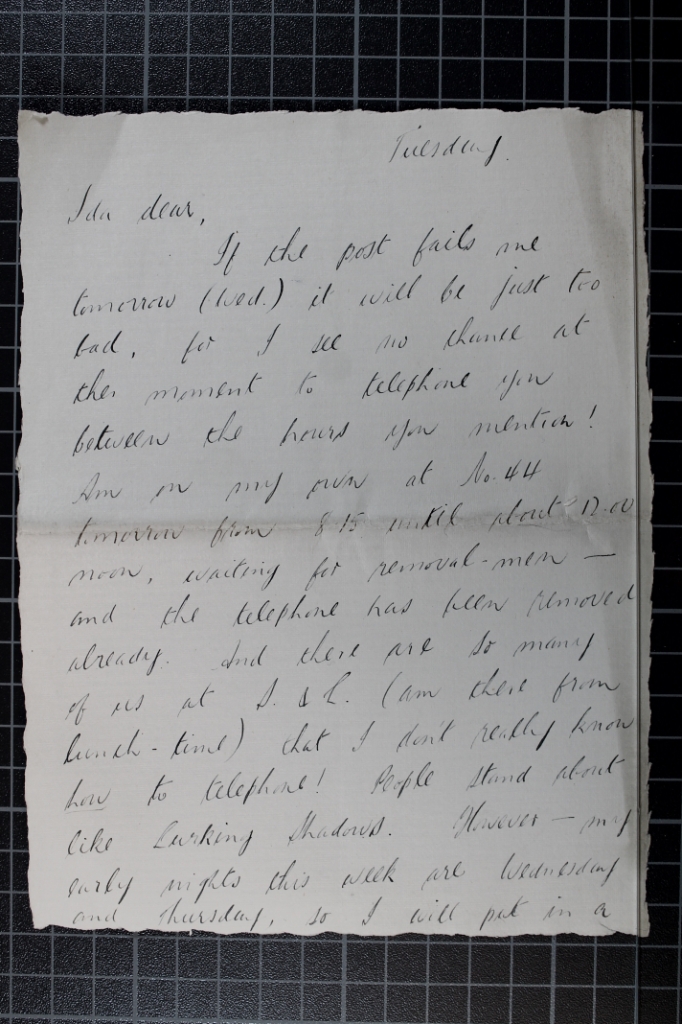 Tuesday.
Ida dear,
If the post fails me
tomorrow (Wed.) it will be just too
bad, for I see no chance at
the moment to telephone you
between the hours you mention!
Am on my own at No. 44
tomorrow from 8-15 until about 12-00
noon, waiting for removal-men —
and the telephone has been removed
already. And there are so many
of us at S. & L. (am there from
lunch-time) that I don't really know
how to telephone! People stand about
like Lurking Shadows. However — my
early nights this week are Wednesday
and Thursday, so I will put in a